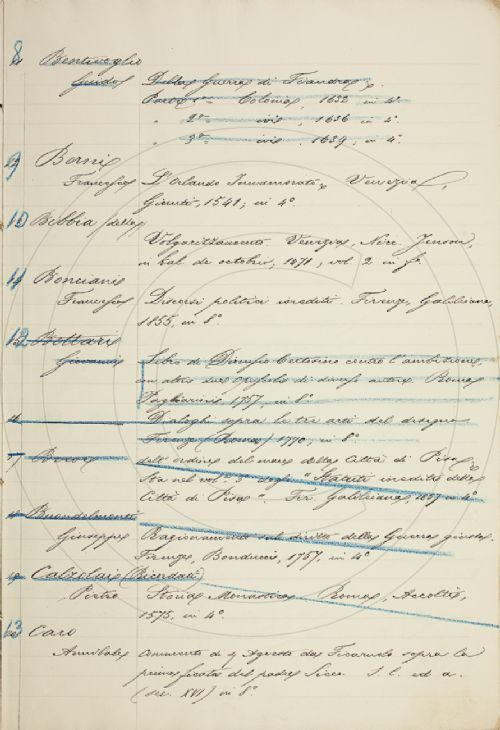 8 Bentivoglio
Guido Della Guerra di Fiandra.
Parte 1a Colonia, 1632, in 4°.
" 2a — ivi, 1636 in 4°.
" 3a — ivi, 1639, in 4.
9 Berni
Francesco L'Orlando Innamorato, Venezia,
Giunti, 1541, in 4°.
10 Bibbia (della)
Volgarizzamento. Venezia, Nic. Jenson,
in kal. de octobrio, 1471, vol. 2 in f.
11 Bonciani
Francesco Discorsi politici inediti. Firenze, Galileiana,
1855, in 8°.
12 Bottari
Giovanni Libro di contro l'ambizione,
con altri suoi opuscoli di diversi autori. Roma
Pagliarini 1757, in 8°.
Dialoghi sopra le tre arti del disegno.
Firenze (Roma) 1770, in 8°.
dell'ordine del mare della Città di Pisa,
Sta nel vol. 3° degli "Statuti inediti della
Città di Pisa". Fir. Galileiana 1857 in 4°.
Buondelmonti
Giuseppe Ragionamento sul diritto della Guerra giusta.
Firenze, Bonducci, 1757, in 4°
Calzolai
Pietro Storia Monastica Roma, Accolti,
1575, in 4°.
13 Caro
Annibale Comento di Ser Agresto da Ficaruolo sopra la
prima ficata del padre Siceo. S. l. ed a.
(sec. XVI) in 8°